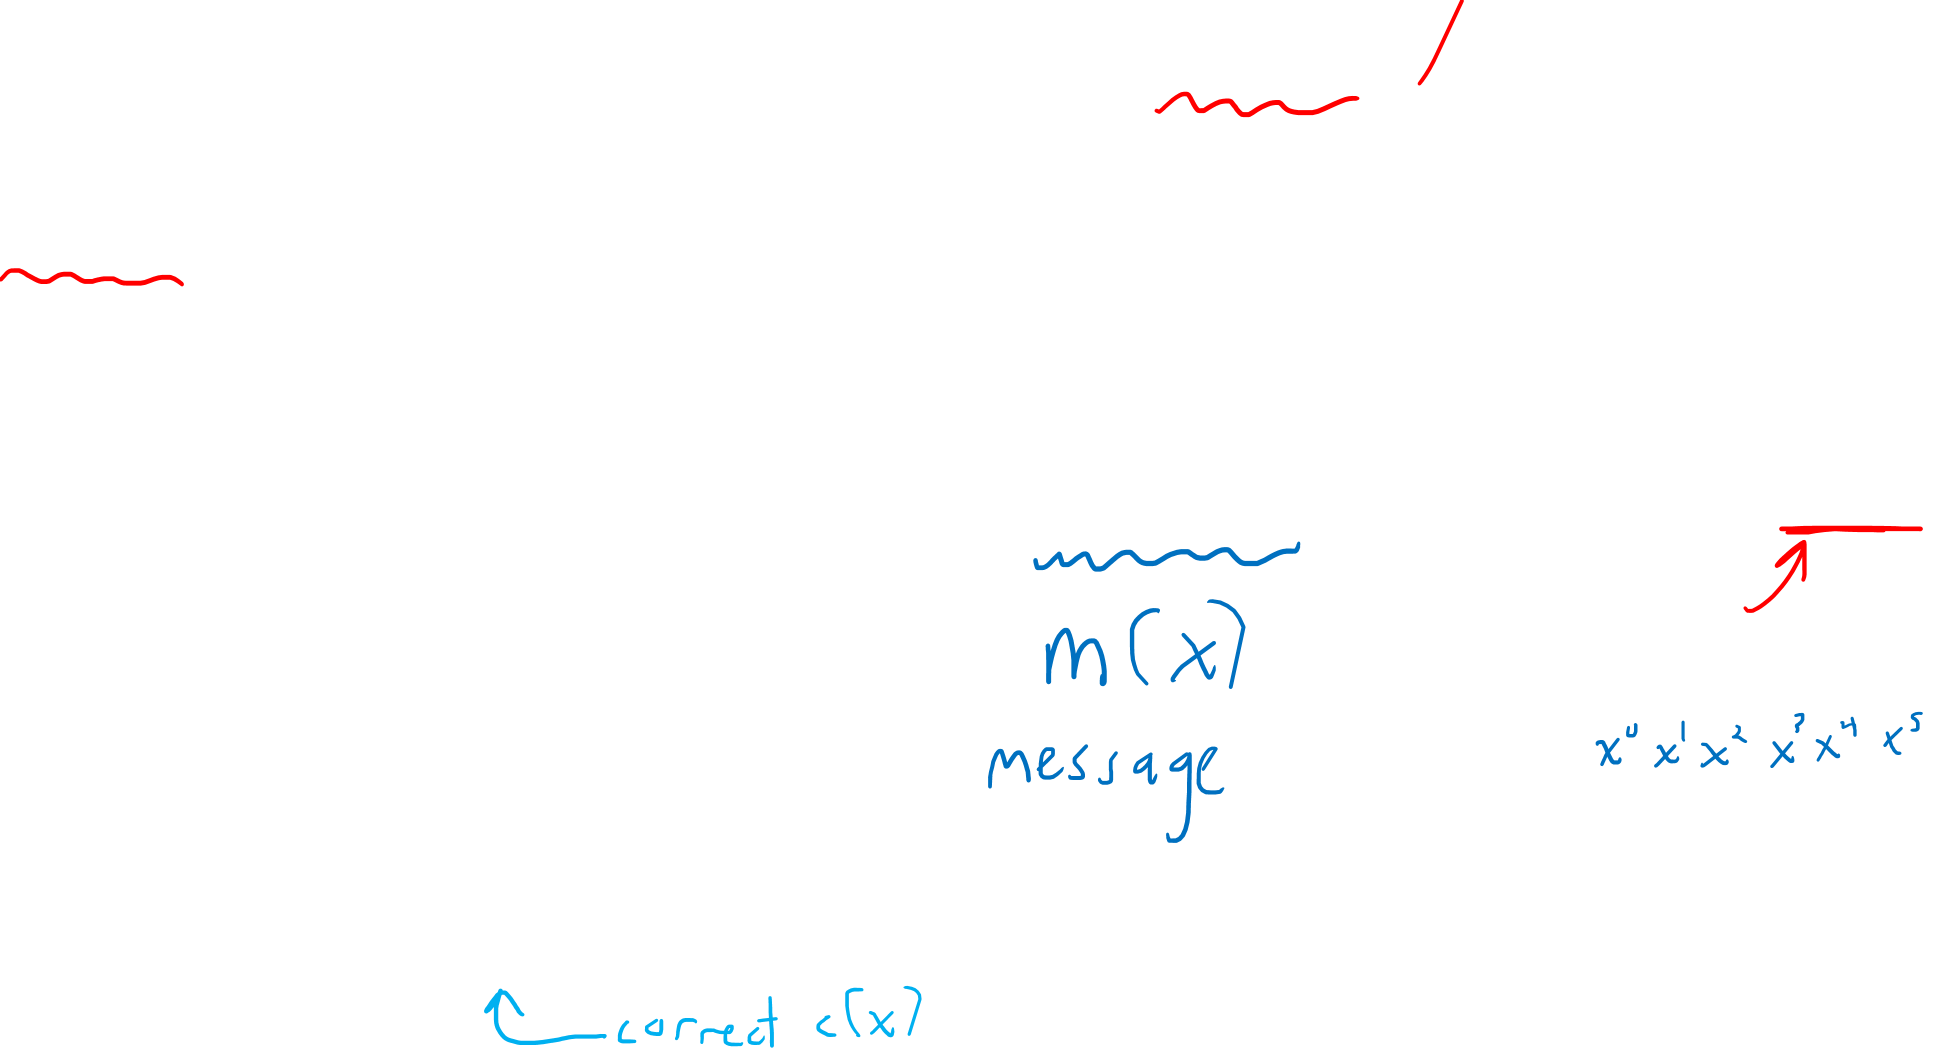 m(x)
message
x⁰ x¹ x² x³ x⁴ x⁵
correct c(x)